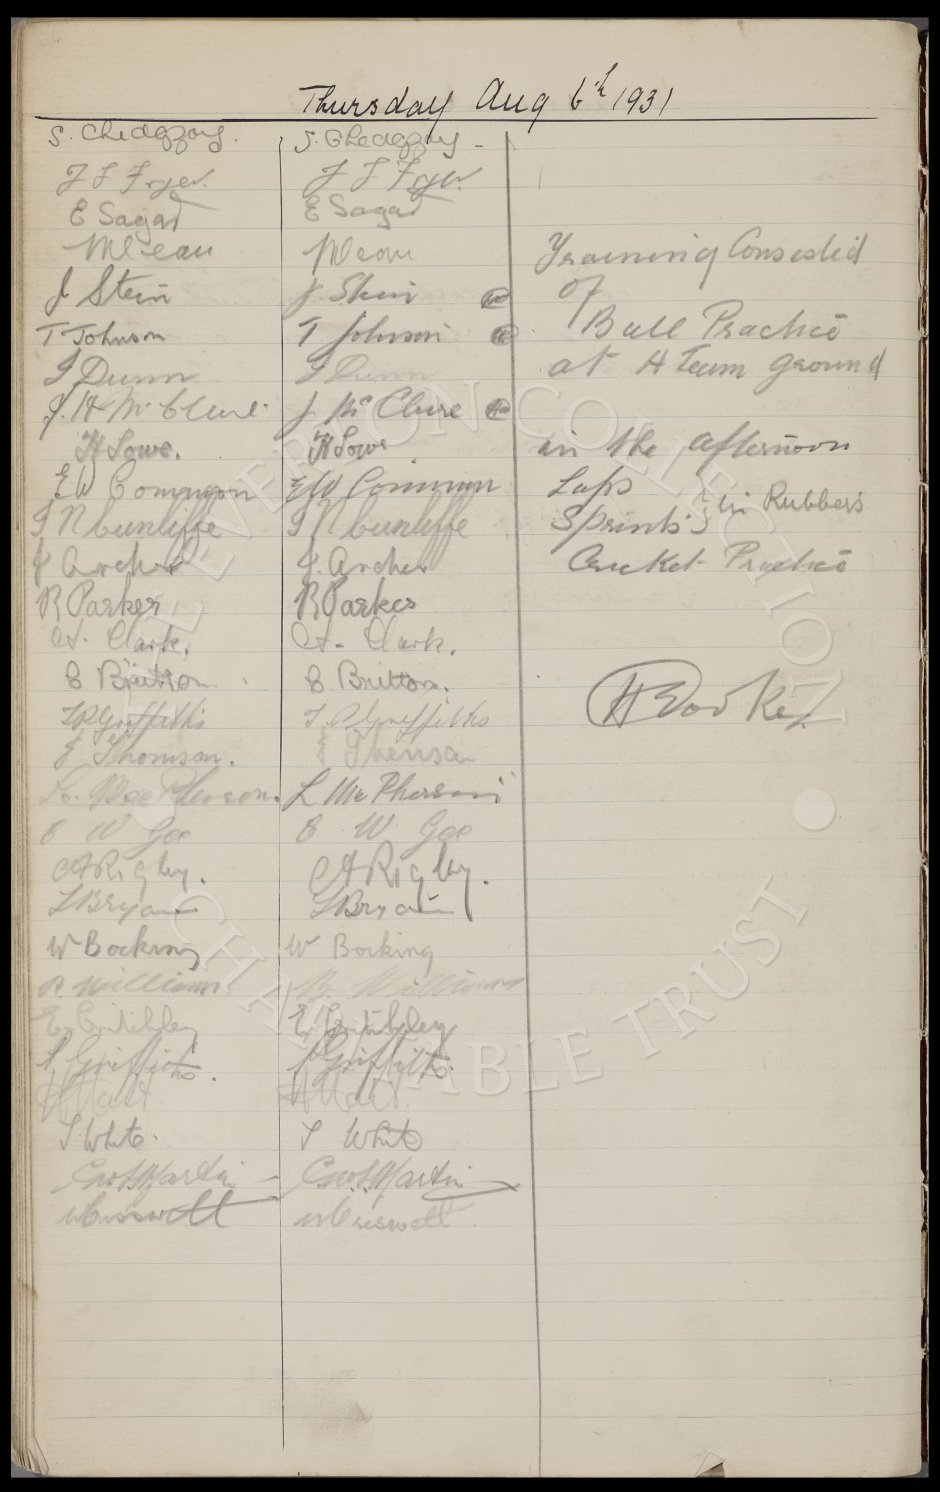 Thursday Aug 6th 1931
S. Chedgzoy. S. Chedgzoy -
J L Fryer. J L Fryer.
E Sagar E Sagar
Training Consisted
of
J Stein J Stein
Ball Practice
T Johnson T Johnson
at A Team ground
J Dunn J Dunn
J. H Mc Clure. J Mc Clure
in the afternoon
H Lowe. H Lowe
EW Common EW Common
Laps
Sprints } in Rubbers
J N Cunliffe J N Cunliffe
J Archer J. Archer
Cricket Practice
R Parker R Parker
A. Clark. A. Clark.
C Britton C Britton.
H Cooke
T P Griffiths T. P Griffiths
J Thomson. J Thomson
L. MacPherson. L Mc Pherson
C W Gee C W Gee
A Rigby. A Rigby.
L Bryan L Bryan
W Bocking W Bocking
R. Williams R. Williams
E. Critchley E. Critchley
P Griffiths. P Griffiths.
T. White. T White
Geo S Martin - Geo S. Martin
W Cresswell W Cresswell.
THE EVERTON COLLECTION
• CHARITABLE TRUST •